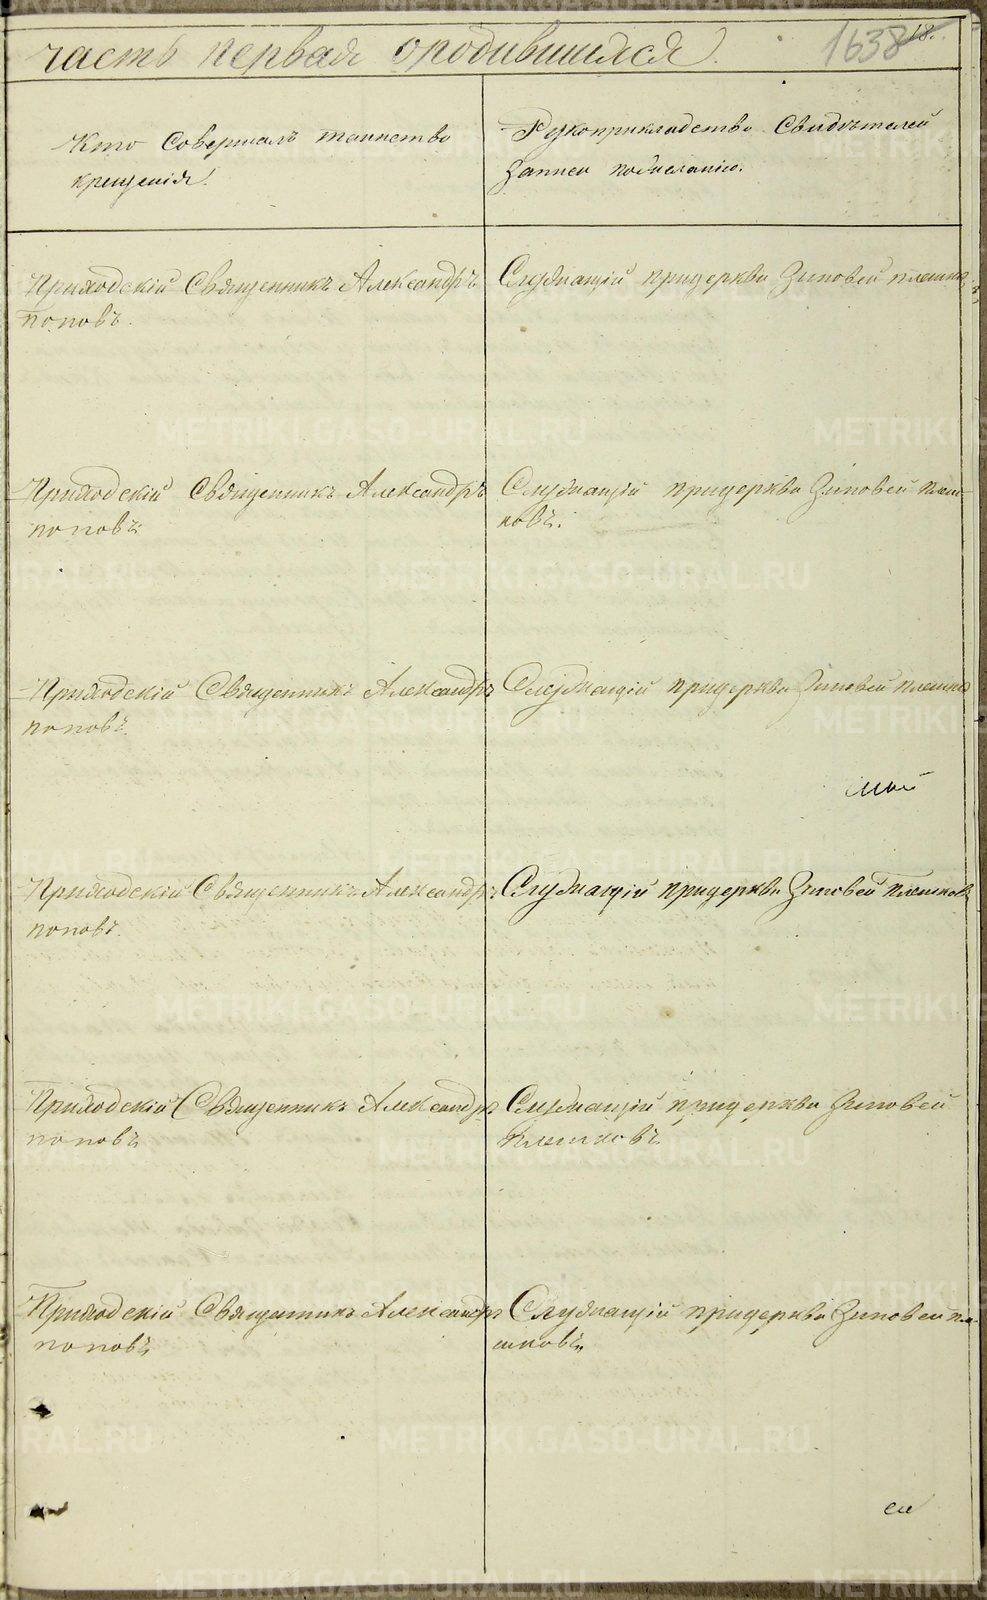 часть первая ородившихся.
1638 18.
Кто Совершалъ таинство
крещенія.
Рукоприкладство Свидѣтелей
Записи по желанію.
Приходскій Священникъ Александръ
поповъ.
Служащій прицеркви Зиновей плешков
Приходскій Священникъ Александръ
поповъ
Служащій прицеркви Зиновей плеш-
ковъ.
Приходскій Священникъ Александръ
поповъ.
Служащій прицеркви Зиновей плешко
Приходскій Священникъ Александръ
поповъ.
Служащій прицеркви Зиновей плешков
Приходскій Священникъ Александръ
поповъ
Служащій прицеркви Зиновей
Плешковъ
Приходскій Священникъ Александръ
поповъ
Служащій прицеркви Зиновей пле-
шковъ
METRIKI.GASO-URAL.RU